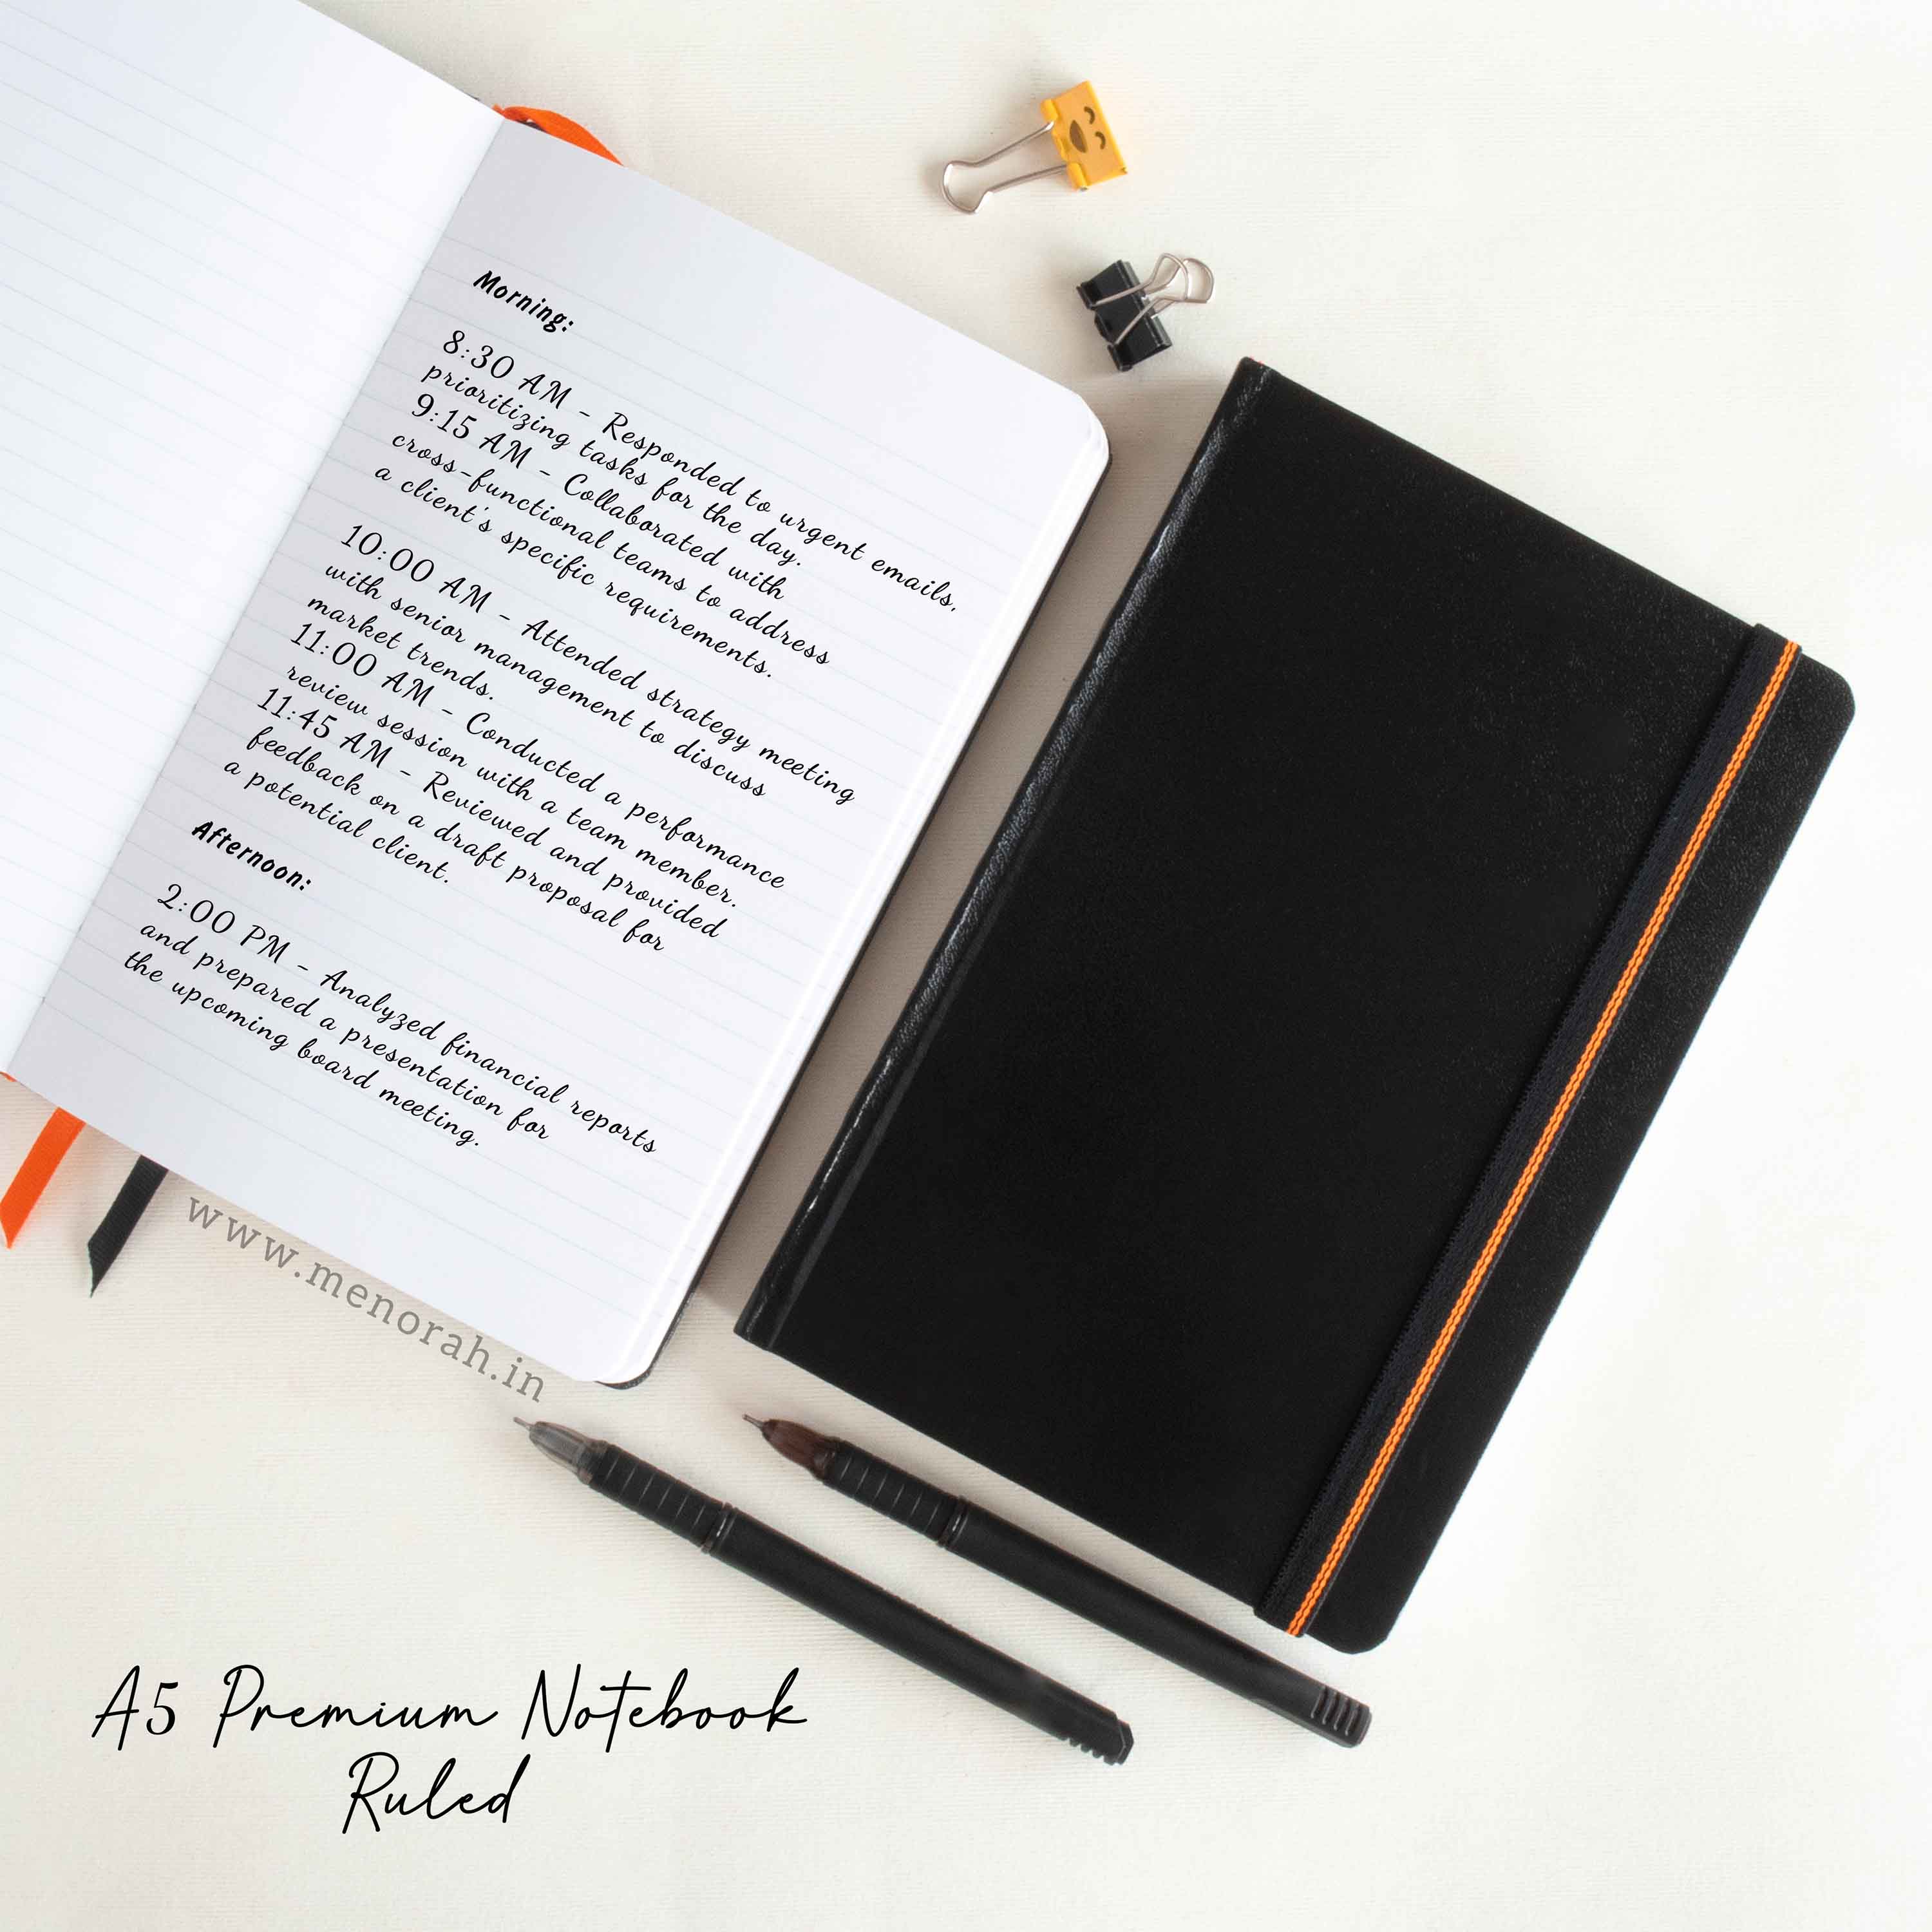 Morning:
8:30 AM - Responded to urgent emails,
prioritizing tasks for the day.
9:15 AM - Collaborated with
cross-functional teams to address
a client's specific requirements.
10:00 AM - Attended strategy meeting
with senior management to discuss
market trends.
11:00 AM - Conducted a performance
review session with a team member.
11:45 AM - Reviewed and provided
feedback on a draft proposal for
a potential client.
Afternoon:
2:00 PM - Analyzed financial reports
and prepared a presentation for
the upcoming board meeting.
www.menorah.in
A5 Premium Notebook
Ruled